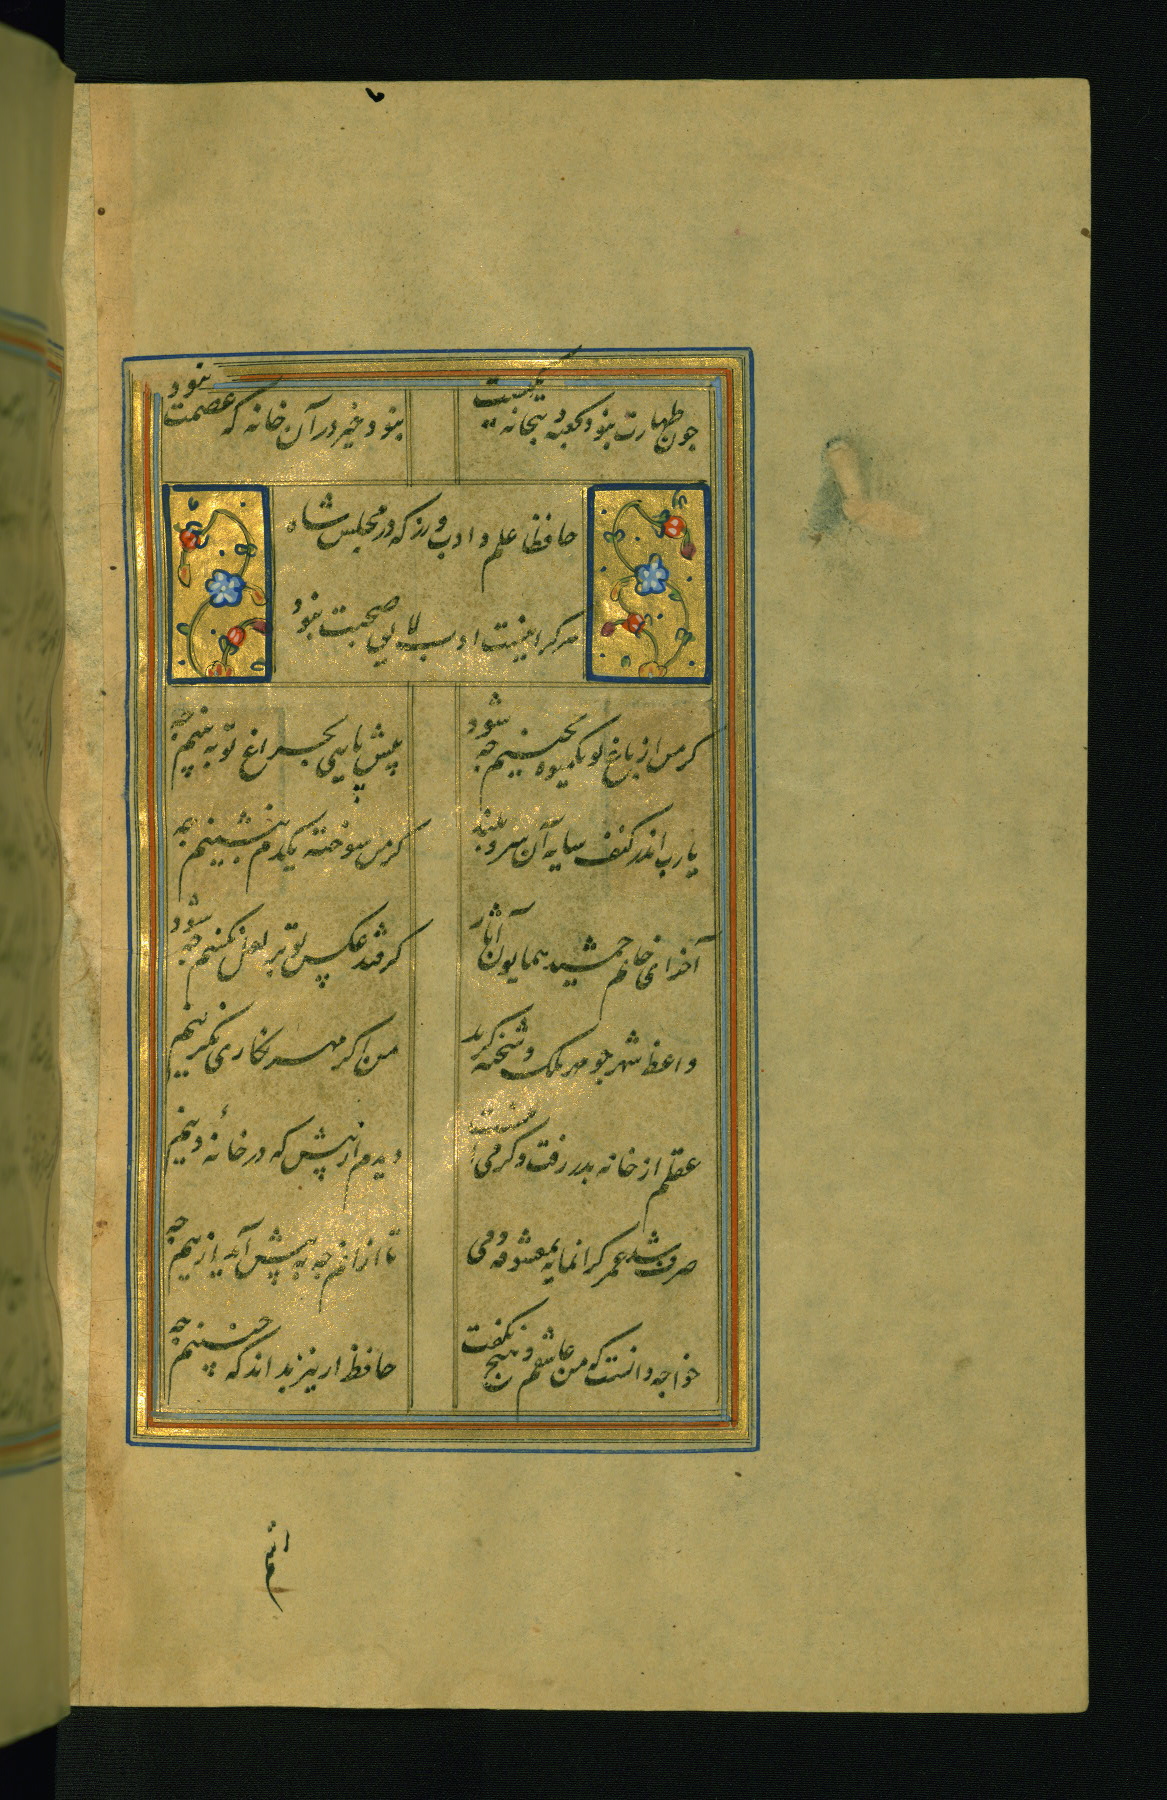 جون طهارت بنود کعبه و بتخانه یکیست
بنود خیر در آن خانه که عصمت بنود
حافظا علم و ادب ورز که در مجلس شاه
هر کرا نیست ادب لایق صحبت بنود
کر من از باغ تو یکمیوه بچینم جه شود
پیش پایی بجراغ تو به بینم جه
یارب اندر کنف سایه آن سرو بلند
کر من سوخته یکدم بنشینم جه
آخر ای خاتم جمشید همایون آثار
کر فتد عکس تو بر لعل نکینم جه شود
واعظ شهر جو مهر ملک و شحنه کزید
من اکر مهر نکاری بکزینم
عقلم از خانه بدر رفت و کر می اینست
دیدم از پیش که در خانهٔ دینم
صرف شد عمر کرانمایه بمعشوقه و می
تا از انم جه به پیش آید ازینم جه
خواجه دانست که من عاشقم و هیج نکفت
حافظ ار نیز بداند که جنینم جه